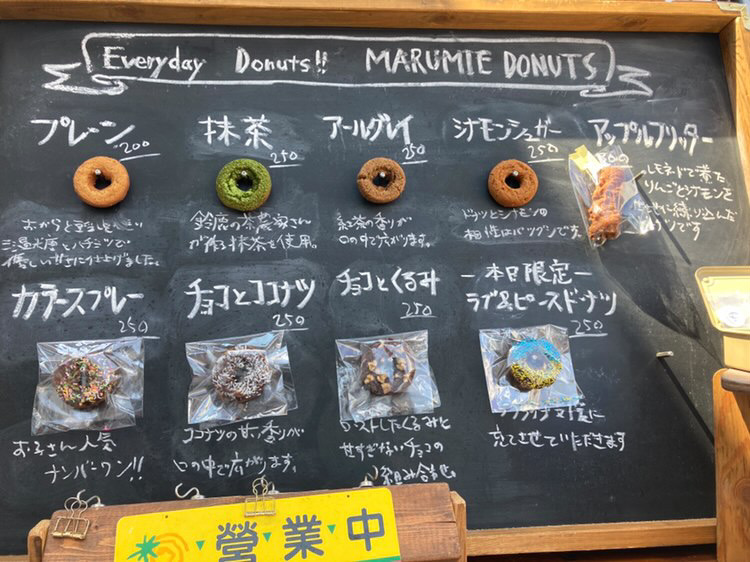 Everyday Donuts!! MARUMIE DONUTS
プレーン
200
おからと豆乳を使い
三温糖とハチミツで
優しい甘さに仕上げました。
抹茶
250
鈴鹿の茶農家さん
が作る抹茶を使用。
アールグレイ
250
紅茶の香りが
口の中で広がります。
シナモンシュガー
250
ドーナツとシナモンの
相性はバツグンです。
アップルフリッター
レモネードで煮た
りんごとシナモンを
生地に練り込んだ
ドーナツです
カラースプレー
250
お子さん人気
ナンバーワン!!
チョコとココナツ
250
ココナツの甘い香りが
口の中で広がります。
チョコとくるみ
250
ローストしたくるみと
甘すぎないチョコの
組み合わせ
ー本日限定ー
ラブ&ピースドーナツ
250
ウクライナ支援に
充てさせていただきます
営業中